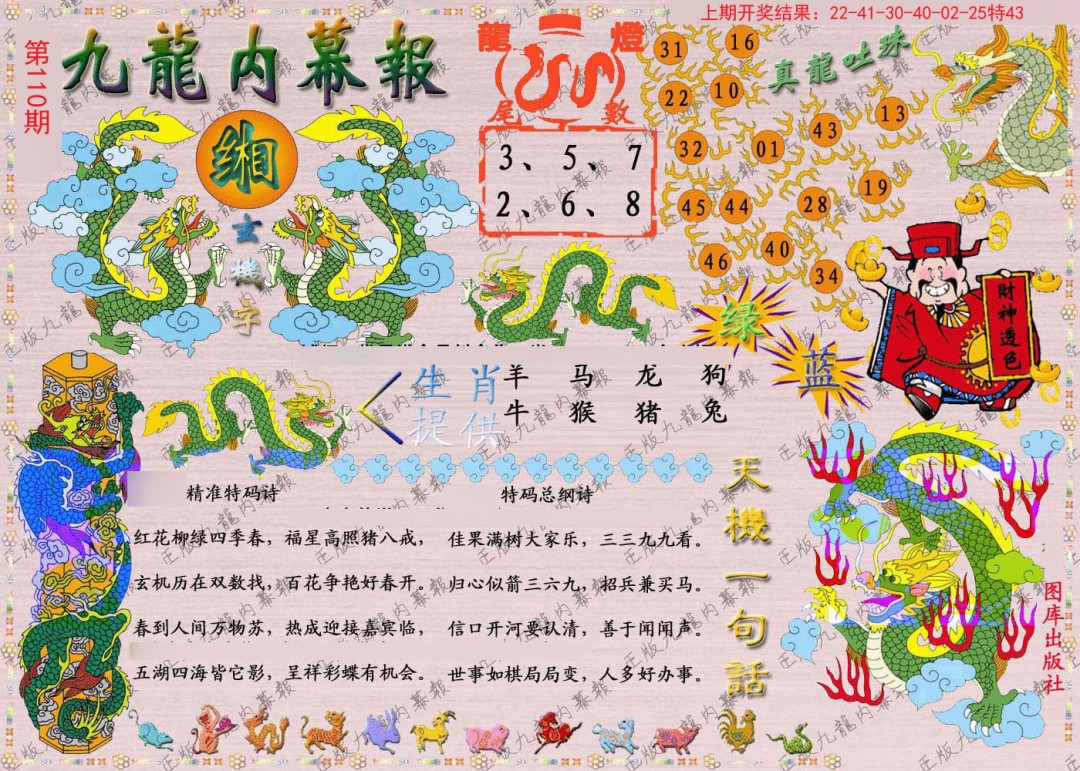 上期开奖结果：22-41-30-40-02-25特43
第110期
九龍内幕報
龍燈
尾數
3、5、7
2、6、8
真龍吐珠
31 16
22 10
43 13
32 01
19
45 44 28
40
46 34
玄機字
绿
蓝
財神透色
生肖提供
羊 马 龙 狗
牛 猴 猪 兔
精准特码诗
红花柳绿四季春，福星高照猪八戒，
玄机历在双数找，百花争艳好春开。
春到人间万物苏，热成迎接嘉宾临，
五湖四海皆它影，呈祥彩蝶有机会。
特码总纲诗
佳果满树大家乐，三三九九看。
归心似箭三六九，招兵兼买马。
信口开河要认清，善于闻闻声。
世事如棋局局变，人多好办事。
天機一句話
图库出版社
正版九龍内幕報